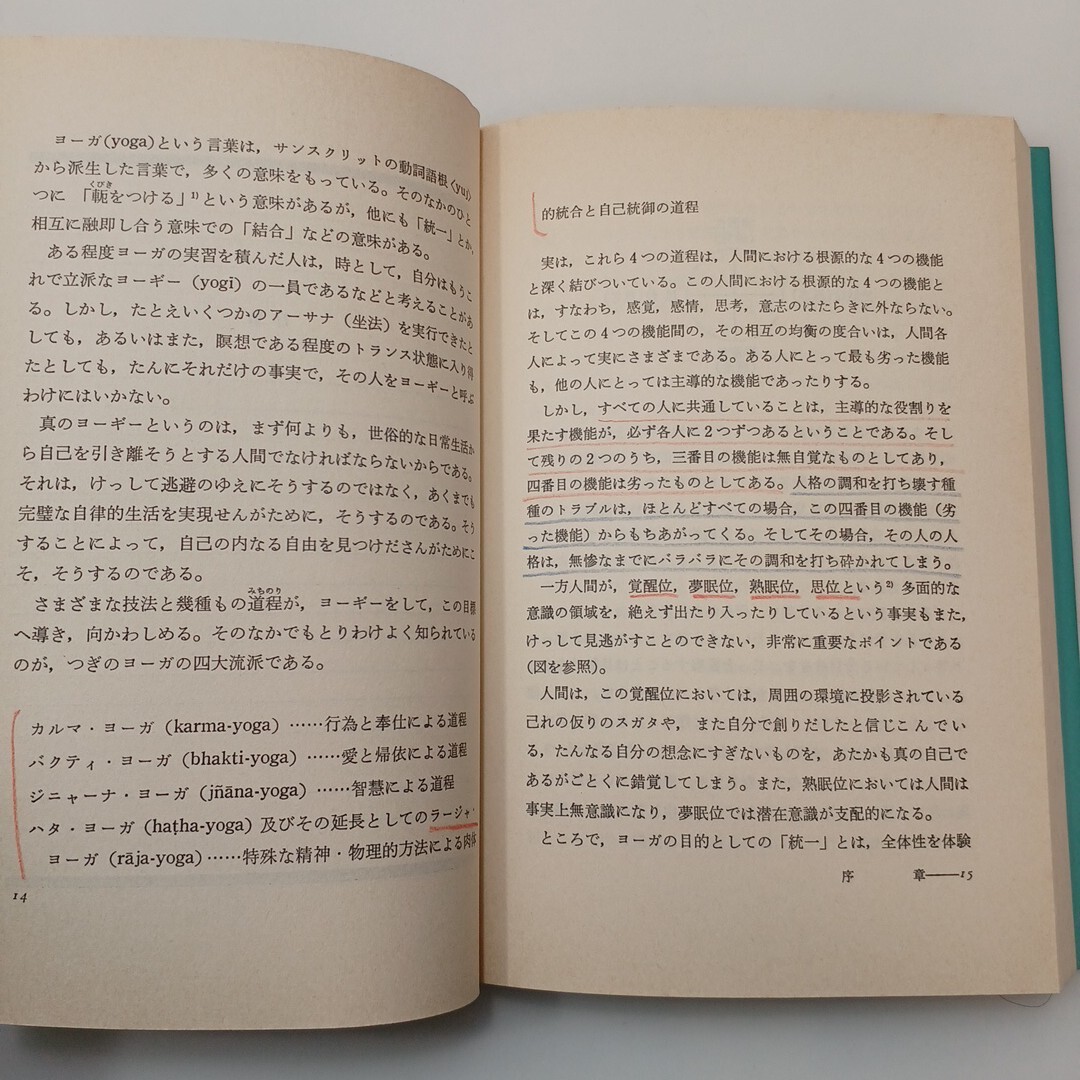 ヨーガ(yoga)という言葉は，サンスクリットの動詞語根〈yuj〉
から派生した言葉で，多くの意味をもっている。そのなかのひと
つに「軛をつける」¹⁾という意味があるが，他にも「統一」とか，
相互に融即し合う意味での「結合」などの意味がある。
ある程度ヨーガの実習を積んだ人は，時として，自分はもうこ
れで立派なヨーギー (yogī) の一員であるなどと考えることがあ
る。しかし，たとえいくつかのアーサナ（坐法）を実行できたと
しても，あるいはまた，瞑想である程度のトランス状態に入り得
たとしても，たんにそれだけの事実で，その人をヨーギーと呼ぶ
わけにはいかない。
真のヨーギーというのは，まず何よりも，世俗的な日常生活か
ら自己を引き離そうとする人間でなければならないからである。
それは，けっして逃避のゆえにそうするのではなく，あくまでも
完璧な自律的生活を実現せんがために，そうするのである。そう
することによって，自己の内なる自由を見つけださんがためにこ
そ，そうするのである。
さまざまな技法と幾種もの道程が，ヨーギーをして，この目標
へ導き，向かわしめる。そのなかでもとりわけよく知られている
のが，つぎのヨーガの四大流派である。
カルマ・ヨーガ (karma-yoga) ……行為と奉仕による道程
バクティ・ヨーガ (bhakti-yoga) ……愛と帰依による道程
ジニャーナ・ヨーガ (jñāna-yoga) ……智慧による道程
ハタ・ヨーガ (haṭha-yoga) 及びその延長としてのラージャ・
ヨーガ (rāja-yoga) ……特殊な精神・物理的方法による肉体
14
的統合と自己統御の道程
実は，これら4つの道程は，人間における根源的な4つの機能
と深く結びついている。この人間における根源的な4つの機能と
は，すなわち，感覚，感情，思考，意志のはたらきに外ならない。
そしてこの4つの機能間の，その相互の均衡の度合いは，人間各
人によって実にさまざまである。ある人にとって最も劣った機能
も，他の人にとっては主導的な機能であったりする。
しかし，すべての人に共通していることは，主導的な役割りを
果たす機能が，必ず各人に2つずつあるということである。そし
て残りの2つのうち，三番目の機能は無自覚なものとしてあり，
四番目の機能は劣ったものとしてある。人格の調和を打ち壊す種
種のトラブルは，ほとんどすべての場合，この四番目の機能（劣
った機能）からもちあがってくる。そしてその場合，その人の人
格は，無惨なまでにバラバラにその調和を打ち砕かれてしまう。
一方人間が，覚醒位，夢眠位，熟眠位，思位という²⁾ 多面的な
意識の領域を，絶えず出たり入ったりしているという事実もまた，
けっして見逃がすことのできない，非常に重要なポイントである
(図を参照)。
人間は，この覚醒位においては，周囲の環境に投影されている
己れの仮りのスガタや，また自分で創りだしたと信じこんでい
る，たんなる自分の想念にすぎないものを，あたかも真の自己で
あるがごとくに錯覚してしまう。また，熟眠位においては人間は
事実上無意識になり，夢眠位では潜在意識が支配的になる。
ところで，ヨーガの目的としての「統一」とは，全体性を体験
序 章——15